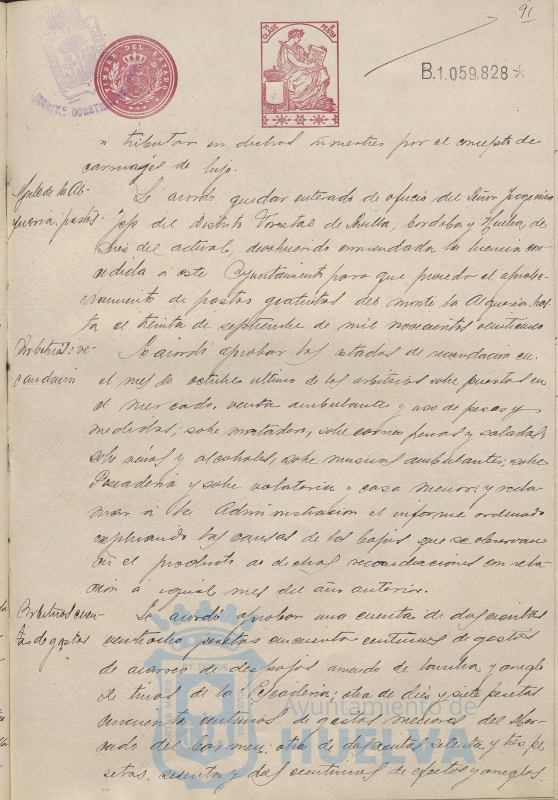 91
TIMBRE DEL ESTADO
CLASE
PESETAS
B.1.059.828
tributar en dichos trimestres por el concepto de
carruages de lujo.
Monte de la Al-
queria: pastos
Se acordó quedar enterado de oficio del Señor Ingeniero
Jefe del Distrito Forestal de Sevilla, Cordoba y Huelva, de
del actual, devolviendo enmendada la licencia con
cedida á este Ayuntamiento para que proceda al aprove-
chamiento de pastos gratuitos del monte la Alqueria has
ta el treinta de septiembre de mil novecientos veinticinco
Arbitrios: re-
caudacion
Se acordó aprobar los estados de recaudacion en
el mes de octubre ultimo de los arbitrios sobre puestos en
el mercado, venta ambulante y uso de pesas y
medidas; sobre matadero, sobre carnes frescas y saladas,
sobre vinos y alcoholes, sobre musicas ambulantes; sobre
Pescaderia y sobre volateria y caza menor; y recla
mar á la Administracion el informe ordenado
explicando las causas de las bajas que se observan
en el producto de dichas recaudaciones con rela
cion á igual mes del año anterior.
Arbitrios: cuen-
ta de gastos
Se acordó aprobar una cuenta de doscientas
veintiocho pesetas cincuenta centimos de gastos
de acarreo de despojos, de y arreglo
de tinas de la; otra de diez y siete pesetas
cincuenta centimos de gastos menores del Mer-
cado del Carmen; otra de doscientas setenta y tres pe
setas, sesenta y dos centimos de efectos y arreglos
Ayuntamiento de
HUELVA